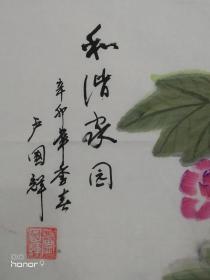 和谐家园
辛卯年季春
卢国辉
honor